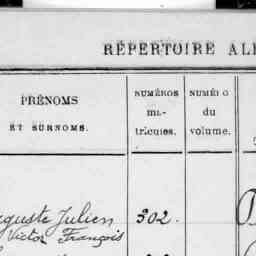 RÉPERTOIRE AL
PRÉNOMS
ET SURNOMS.
NUMÉROS
ma-
tricules.
NUMÉRO
du
volume.
guste Julien 302.
Victor François